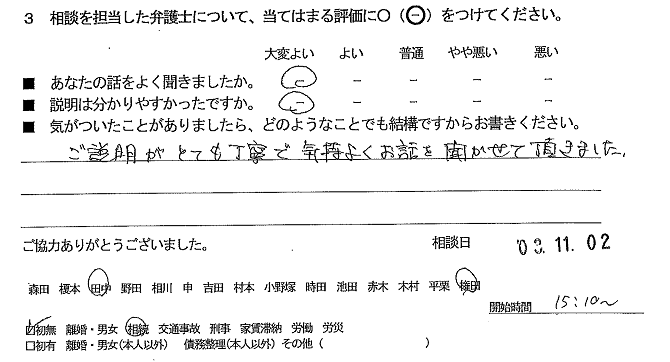 3 相談を担当した弁護士について、当てはまる評価に○(㊀)をつけてください。
大変よい よい 普通 やや悪い 悪い
■ あなたの話をよく聞きましたか。 － － － － －
■ 説明は分かりやすかったですか。 － － － － －
■ 気がついたことがありましたら、どのようなことでも結構ですからお書きください。
ご説明がとても丁寧で気持よくお話を聞かせて頂きました。
ご協力ありがとうございました。 相談日 '09.11.02
森田 榎本 田中 野田 相川 申 吉田 村本 小野塚 時田 池田 赤木 木村 平栗
開始時間 15:10～
□初無 離婚・男女 相続 交通事故 刑事 家賃滞納 労働 労災
□初有 離婚・男女(本人以外) 債務整理(本人以外) その他 ( )